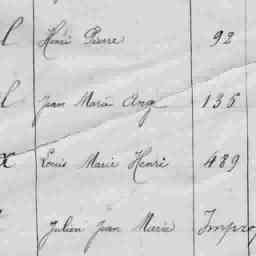 l Henri Pierre 92
l Jean Marie Ange 135
x Louis Marie Henri 489
Julien Jean Marie Impro